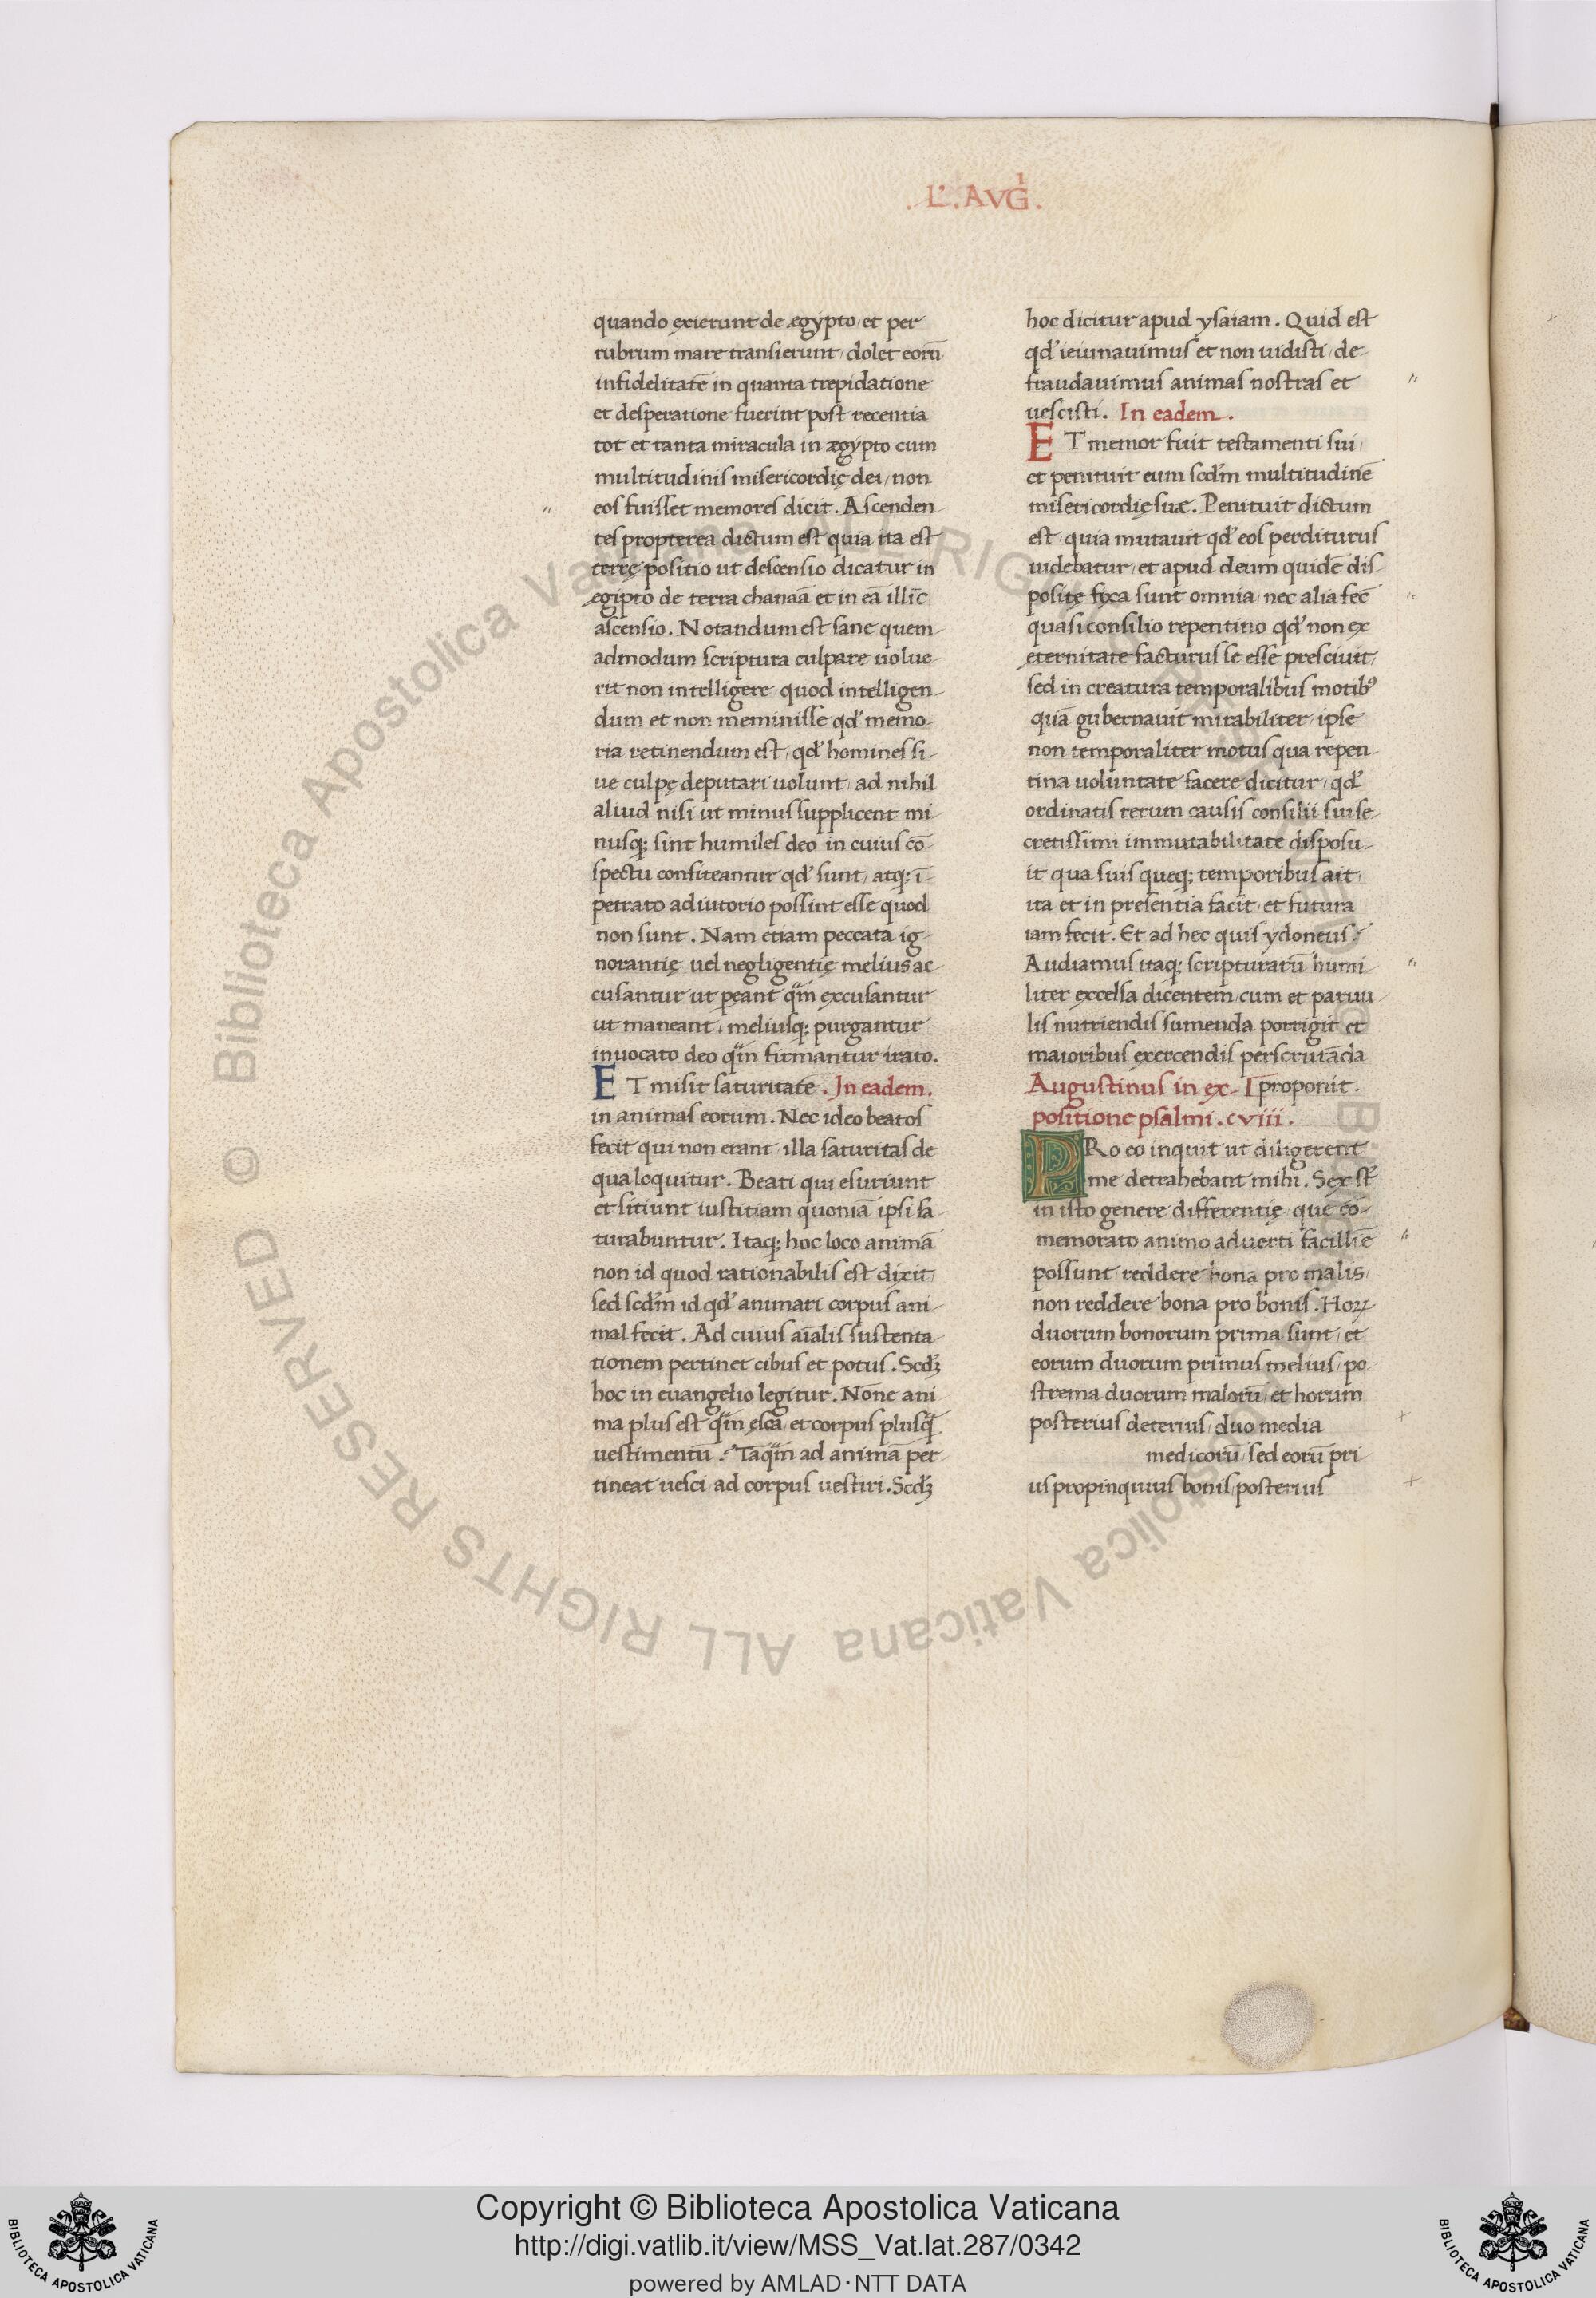 .L’.AVG̅.
quando exierunt de ægypto et per
rubrum mare transierunt dolet eorū
infidelitatē in quanta trepidatione
et desperatione fuerint post recentia
tot et tanta miracula in ægypto cum
multitudinis misericordię dei non
eos fuisset memores dicit. Ascenden-
tes propterea dictum est quia ita est
terrę positio ut descensio dicatur in
egipto de terra chanaā et in eā illīc
ascensio. Notandum est sane quem-
admodum scriptura culpare uolue-
rit non intelligere quod intelligen-
dum et non meminisse qd' memo-
ria retinendum est, qd' homines si-
ue culpę deputari uolunt, ad nihil
aliud nisi ut minus supplicent mi-
nusq; sint humiles deo in cuius cō-
spectu confiteantur qd' sunt, atq; ī-
petrato adiutorio possint esse quod
non sunt. Nam etiam peccata ig-
norantię uel negligentię melius ac-
cusantur ut peant qm̄ excusantur
ut maneant, meliusq; purgantur
inuocato deo qm̄ firmantur irato.
ET misit saturitatē. In eadem.
in animas eorum. Nec ideo beatos
fecit qui non erant illa saturitas de
qua loquitur. Beati qui esuriunt
et sitiunt iustitiam quoniā ipsi sa-
turabuntur. Itaq; hoc loco animā
non id quod rationabilis est dixit,
sed scdm̄ id qd' animari corpus ani-
mal fecit. Ad cuius aīalis sustenta-
tionem pertinet cibus et potus. Scdꝫ
hoc in euangelio legitur. Nōne ani
ma plus est qm̄ ęsca, et corpus plusq̄
uestimentū? Tāqm̄ ad animā per-
tineat uesci, ad corpus uestiri. Scdꝫ
hoc dicitur apud ysaiam. Quid est
qd' ieiunauimus et non uidisti, de-
fraudauimus animas nostras et
uescisti. In eadem.
ET memor fuit testamenti sui,
et penituit eum scdm̄ multitudinē
misericordię suæ. Penituit dictum
est, quia mutauit qd' eos perditurus
uidebatur, et apud deum quidē dis-
positę fixa sunt omnia, nec alia fec̄
quasi consilio repentino qd' non ex
eternitate facturus se esse presciuit,
sed in creatura temporalibus motibꝰ
quā gubernauit mirabiliter, ipse
non temporaliter motus qua repen-
tina uoluntate facere dicitur, qd'
ordinatis rerum causis consilii sui se-
cretissimi immutabilitate disposu-
it qua suis queq; temporibus ait,
ita et in presentia facit, et futura
iam fecit. Et ad hec quis ydoneus?
Audiamus itaq; scripturarū humi-
liter excelsa dicentem, cum et paruu-
lis nutriendis sumenda porrigit et
maioribus exercendis perscrutāda
Augustinus in ex- proponit.
positione psalmi. cviii.
PRo eo inquit ut diligerent
me detrahebant mihi. Sex st̄
in isto genere differentię, que cō-
memorato animo aduerti facillīe
possunt, reddere bona pro malis,
non reddere bona pro bonis. Hoꝝ
duorum bonorum prima sunt, et
eorum duorum primus melius, po-
strema duorum malorū, et horum
posterius deterius, duo media
medicorū, sed eorū pri
us propinquius bonis, posterius
© Biblioteca Apostolica Vaticana ALL RIGHTS RESERVED
© Biblioteca Apostolica Vaticana ALL RIGHTS RESERVED
Copyright © Biblioteca Apostolica Vaticana
http://digi.vatlib.it/view/MSS_Vat.lat.287/0342
powered by AMLAD·NTT DATA
BIBLIOTECA APOSTOLICA VATICANA
BIBLIOTECA APOSTOLICA VATICANA